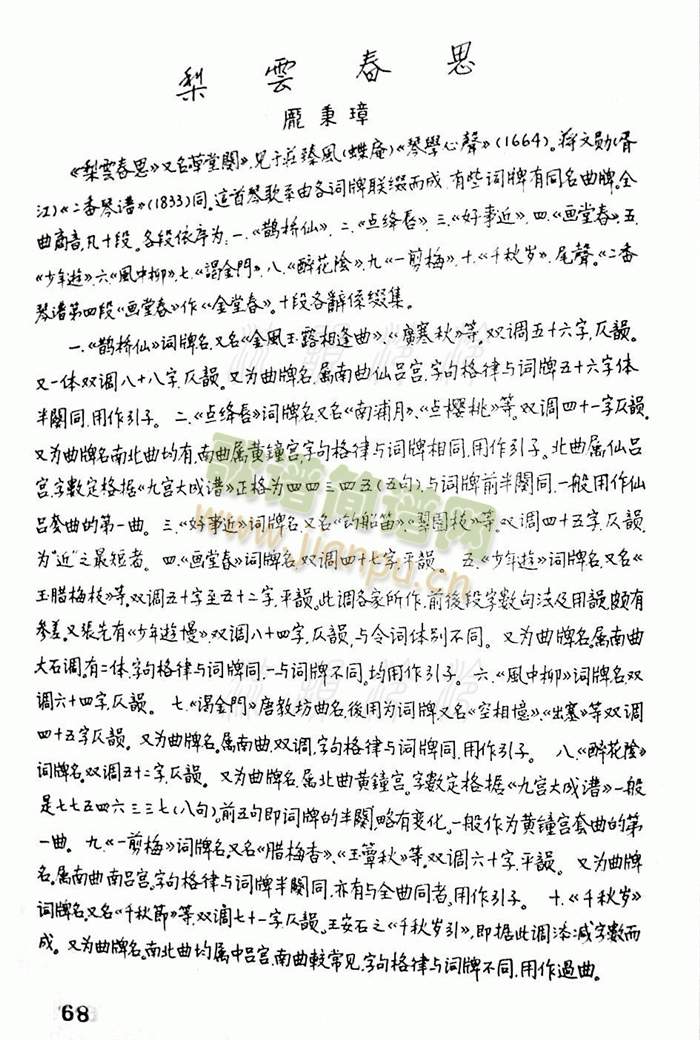 梨雲春思
龎秉璋
《梨雲春思》又名《草堂閒》,见于莊臻凰(蝶庵)《琴學心聲》(1664)。蒋文勋(胥
江)《二香琴谱》(1833)同。这首琴歌系由各词牌联缀而成,有些词牌有同名曲牌。全
曲商音,凡十段。各段依序为:一.《鹊桥仙》,二.《点绛唇》,三.《好事近》,四.《画堂春》,五.
《少年遊》,六.《風中柳》,七.《謁金門》,八.《醉花陰》,九.《一剪梅》,十.《千秋岁》,尾聲。《二香
琴谱》第四段《画堂春》作《金堂春》。十段各辭係缀集。
一.《鹊桥仙》词牌名,又名《金風玉露相逢曲》、《廣寒秋》等。双调五十六字,仄韻。
又一体双调八十八字,仄韻。又为曲牌名,属南曲仙吕宫,字句格律与词牌五十六字体
半闋同,用作引子。 二.《点绛唇》词牌名,又名《南浦月》、《点樱桃》等。双调四十一字仄韻。
又为曲牌名,南北曲均有,南曲属黄鐘宫,字句格律与词牌相同,用作引子。北曲属仙吕
宫,字數定格据《九宫大成谱》正格为四四三四五(五句),与词牌前半闋同,一般用作仙
吕套曲的第一曲。 三.《好事近》词牌名,又名《钓船笛》、《翠圆枝》等,双调四十五字,仄韻,
为"近"之最短者。 四.《画堂春》词牌名,双调四十七字,平韻。 五.《少年遊》词牌名,又名《
玉腊梅枝》等,双调五十字至五十二字,平韻。此调各家所作,前後段字數句法及用韻,颇有
参差。又張先有《少年遊慢》,双调八十四字,仄韻,与令词体别不同。 又为曲牌名,属南曲
大石调,有二体,字句格律与词牌同,一与词牌不同。均用作引子。 六.《風中柳》词牌名,双
调六十四字,仄韻。 七.《謁金門》唐教坊曲名,後用为词牌,又名《空相憶》、《出塞》等,双调
四十五字仄韻。 又为曲牌名,属南曲,双调,字句格律与词牌同,用作引子。 八.《醉花陰》
词牌名,双调五十二字,仄韻。 又为曲牌名,属北曲黄鐘宫。字數定格据《九宫大成谱》一般
是七七五四六三三七(八句)。前五句即词牌的半闋,略有变化。一般作为黄鐘宫套曲的第
一曲。 九.《一剪梅》词牌名,又名《腊梅香》、《玉簟秋》等,双调六十字,平韻。 又为曲牌
名,属南曲南吕宫,字句格律与词牌半闋同,亦有与全曲同者。用作引子。 十.《千秋岁》
词牌名,又名《千秋節》等,双调七十一字,仄韻。王安石之《千秋岁引》,即据此调添减字數而
成。 又为曲牌名,南北曲均属中吕宫,南曲較常见,字句格律与词牌不同,用作過曲。
歌谱简谱网
www.jianpu.cn
68